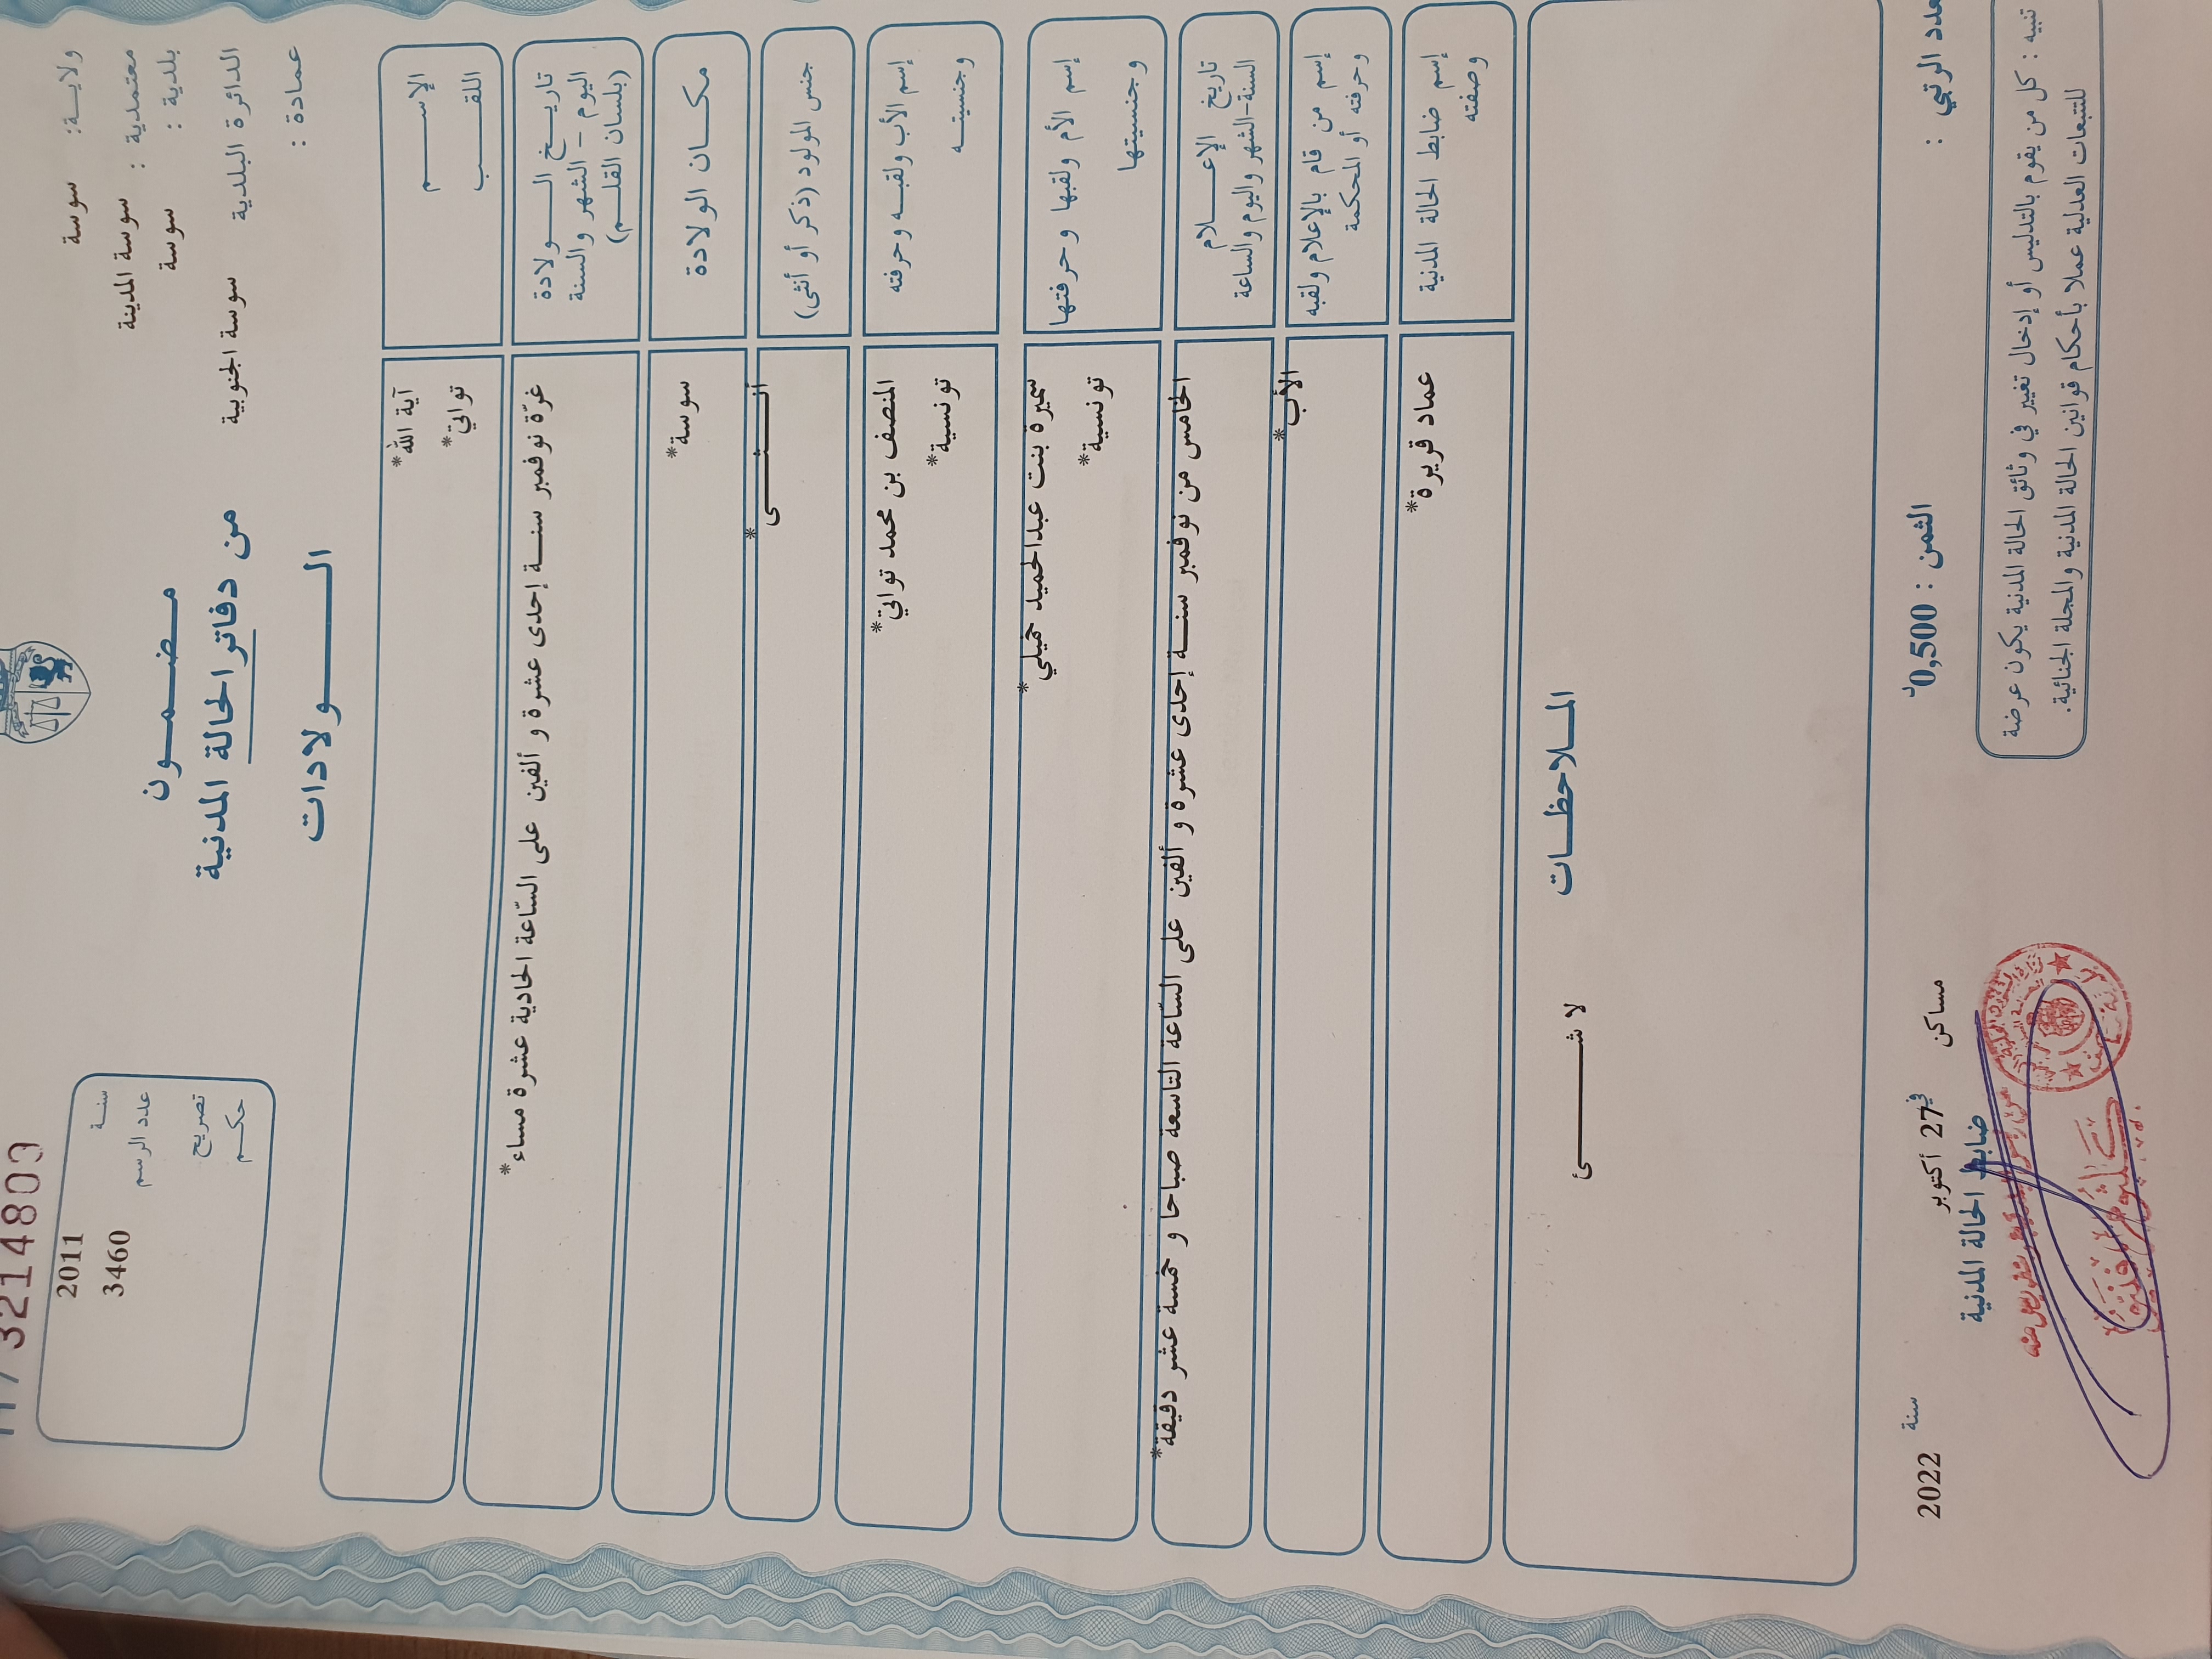 3214809
سنة 2011
عدد الرسم 3460
تصريح
حكم
ولاية: سوسة
معتمدية : سوسة المدينة
بلدية : سوسة
الدائرة البلدية سوسة الجنوبية
عمادة :
مضمون
من دفاتر الحالة المدنية
الولادات
الإسم آية الله*
اللقب تواتي*
تاريخ الولادة غرّة نوفمبر سنة إحدى عشرة و ألفين على السّاعة الحادية عشرة مساء*
اليوم - الشهر والسنة
(بلسان القلم)
مكان الولادة سوسة*
جنس المولود (ذكر أو أنثى) أنثى*
إسم الأب ولقبه وحرفته المنصف بن محمد تواتي*
وجنسيته تونسية*
إسم الأم ولقبها وحرفتها سميرة بنت عبدالحميد خميلي*
وجنسيتها تونسية*
تاريخ الإعلام الخامس من نوفمبر سنة إحدى عشرة و ألفين على السّاعة التاسعة صباحا و خمسة عشر دقيقة*
السنة-الشهر واليوم والساعة
إسم من قام بالإعلام ولقبه الأب*
وحرفته أو المحكمة
إسم ضابط الحالة المدنية عماد قريرة*
وصفته
الملاحظات
لا شئ
عدد الرتبي :
الثمن : 0,500د
مساكن في 27 أكتوبر سنة 2022
ضابط الحالة المدنية
تنبيه : كل من يقوم بالتدليس أو إدخال تغيير في وثائق الحالة المدنية يكون عرضة
للتتبعات العدلية عملا بأحكام قوانين الحالة المدنية والمجلة الجنائية.